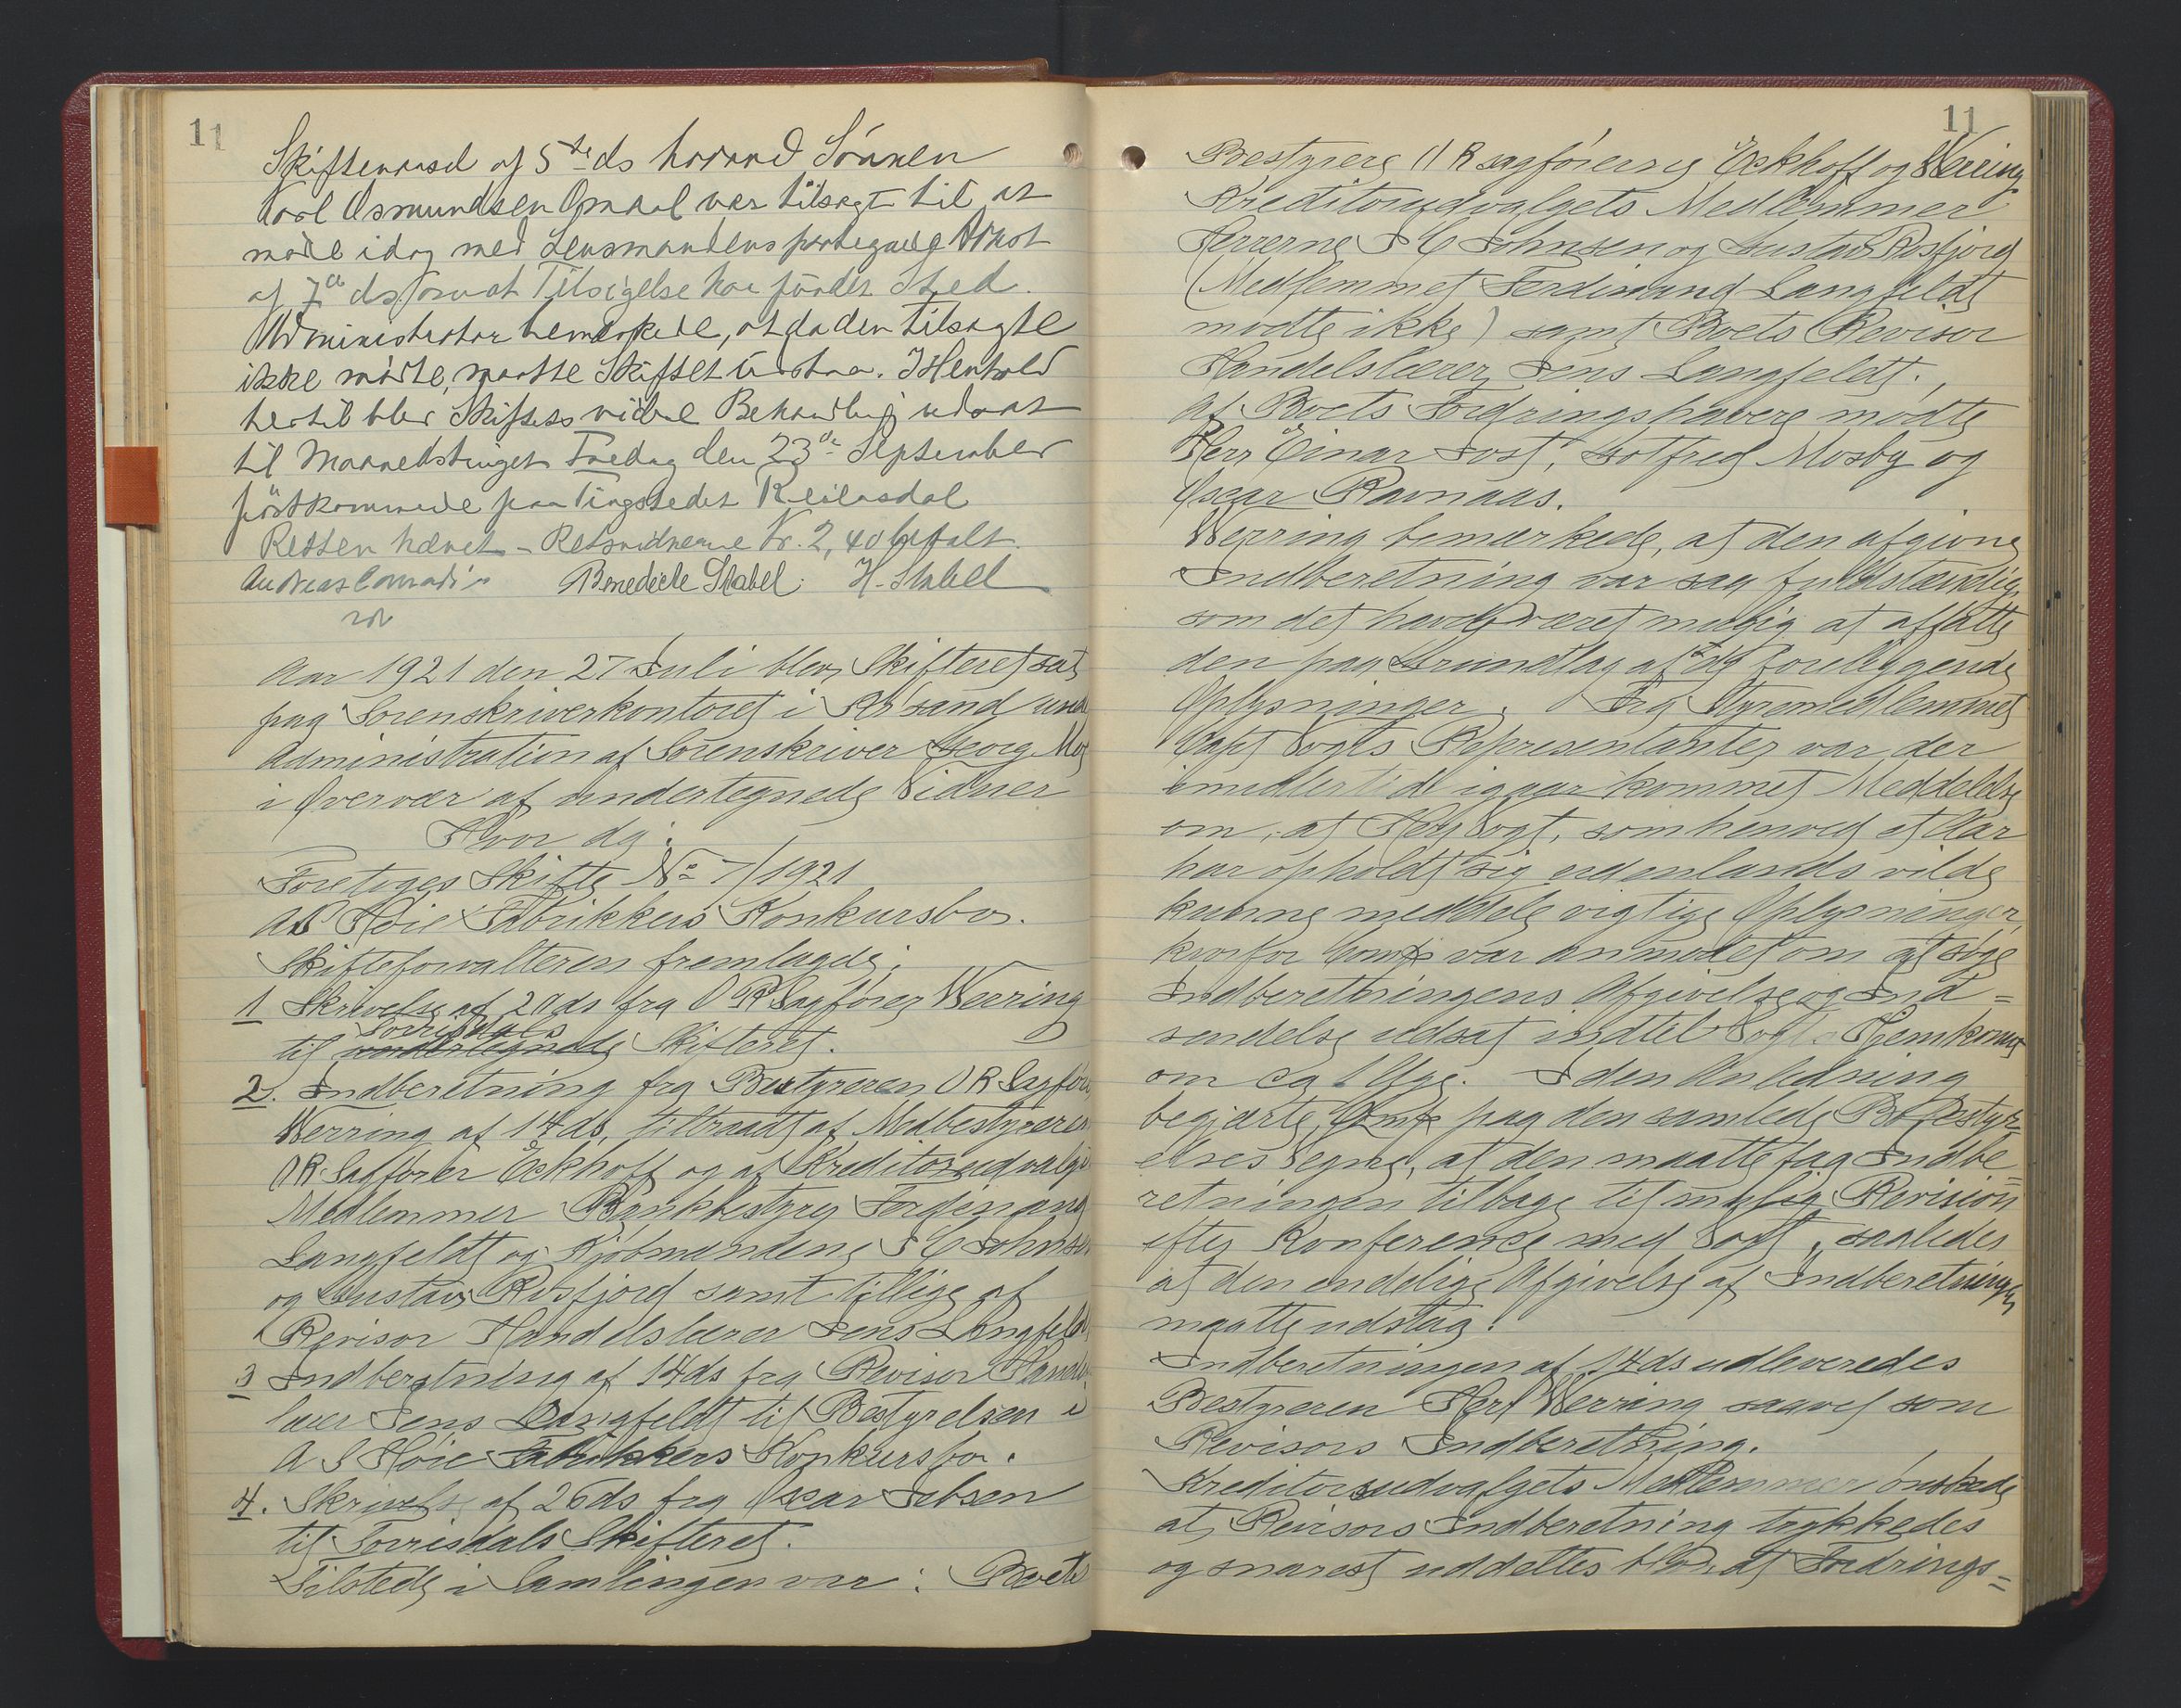 11
Skiftemand af 5te ds hvorved Sönnen
Karl Osmundsen Omdal var tilsagt til at
möde idag med Lensmandens paategnede Attest
af 7de ds for at Tilsigelse har fundet Sted.
Administrator bemærkede, at da den tilsagte
ikke mödte, maatte Skiftet udstaa. I Henhold
hertil blev Skiftets videre Behandling udsat
til Maanedstinget Fredag den 23de September
förstkommende paa Tingstedet Reiersdal
Retten hævet – Retsvidnerne Kr. 2,40 betalt.
Benedicte Stabel. H. Stabell
Aar 1921 den 27 Juli blev Skifteret sat
paa Sorenskriverkontoret i Kr'sand under
Administration af Sorenskriver Georg Moe
i Overvær af undertegnede Vidner
Hvor da:
Foretoges Skifte No 7/1921
A/S Höie Fabrikkers Konkursbo.
Skifteforvalteren fremlagde:
1 Skrivelse af 20 ds fra O R Sagförer Werring
til Torrisdals Skifteret.
2. Indberetning fra Bestyreren O R Sagförer
Werring af 14 ds, tiltraadt af Medbestyreren
O R Sagförer Eckhoff og af Kreditorudvalgets
Medlemmer Bankbestyrer Ferdinand
Langfeldt og Kjöbmændene S C Johnsen
og Gustav Rosfjord samt tillige af
Revisor Handelslærer Jens Langfeldt
3 Indberetning af 14 ds fra Revisor Handels
lærer Jens Langfeldt til Bestyrelsen i
A S Höie Fabrikkers Konkursbo.
4. Skrivelse af 26 ds fra Oscar Jebsen
til Torrisdals Skifteret.
Tilstede i Samlingen var: Boets
11
Bestyrere O R sagförerne Eckhoff og Werring
Kreditorudvalgets Medlemmer
Herrerne S C Johnsen og Gustav Rosfjord
(Medlemmet Ferdinand Langfeldt
mödte ikke) samt Boets Revisor
Handelslærer Jens Langfeldt.
Af Boets Fordringshavere mödte
Herr Einar Jost, Gotfred Mosby og
Oscar Ravnaas.
Werring bemærkede, at den afgivne
Indberetning var saa fuldstændig,
som det havde været mulig at affatte
den paa Grundlag af de foreliggende
Oplysninger. Fra Styremedlemmet
Capt Vogts Repræsentanter var der
imidlertid igaar kommet Meddelelse
om, at Herr Vogt, som henved et Aar
har opholdt sig udenlands vilde
kunne meddele vigtige Oplysninger,
hvorfor Comp var anmodet om at söge
Indberetningens Afgivelse og Ind=
sendelse udsat indtil Vogts Hjemkomst
om ca 1 Uge. I den Anledning
begjærte Comp paa den samlede Bobestyr=
elses Vegne, at den maatte faa Indbe=
retningen tilbage til mulig Revision
efter Konference med Vogt, saaledes
at den endelige Afgivelse af Indberetningen
maatte udstaa.
Indberetningen af 14 ds udleveredes
Bestyreren Herr Werring saavel som
Revisors Indberetning.
Kreditorudvalgets Medlemmer önskede
at Revisors Indberetning trykkedes
og snarest uddeltes blandt Fordrings=